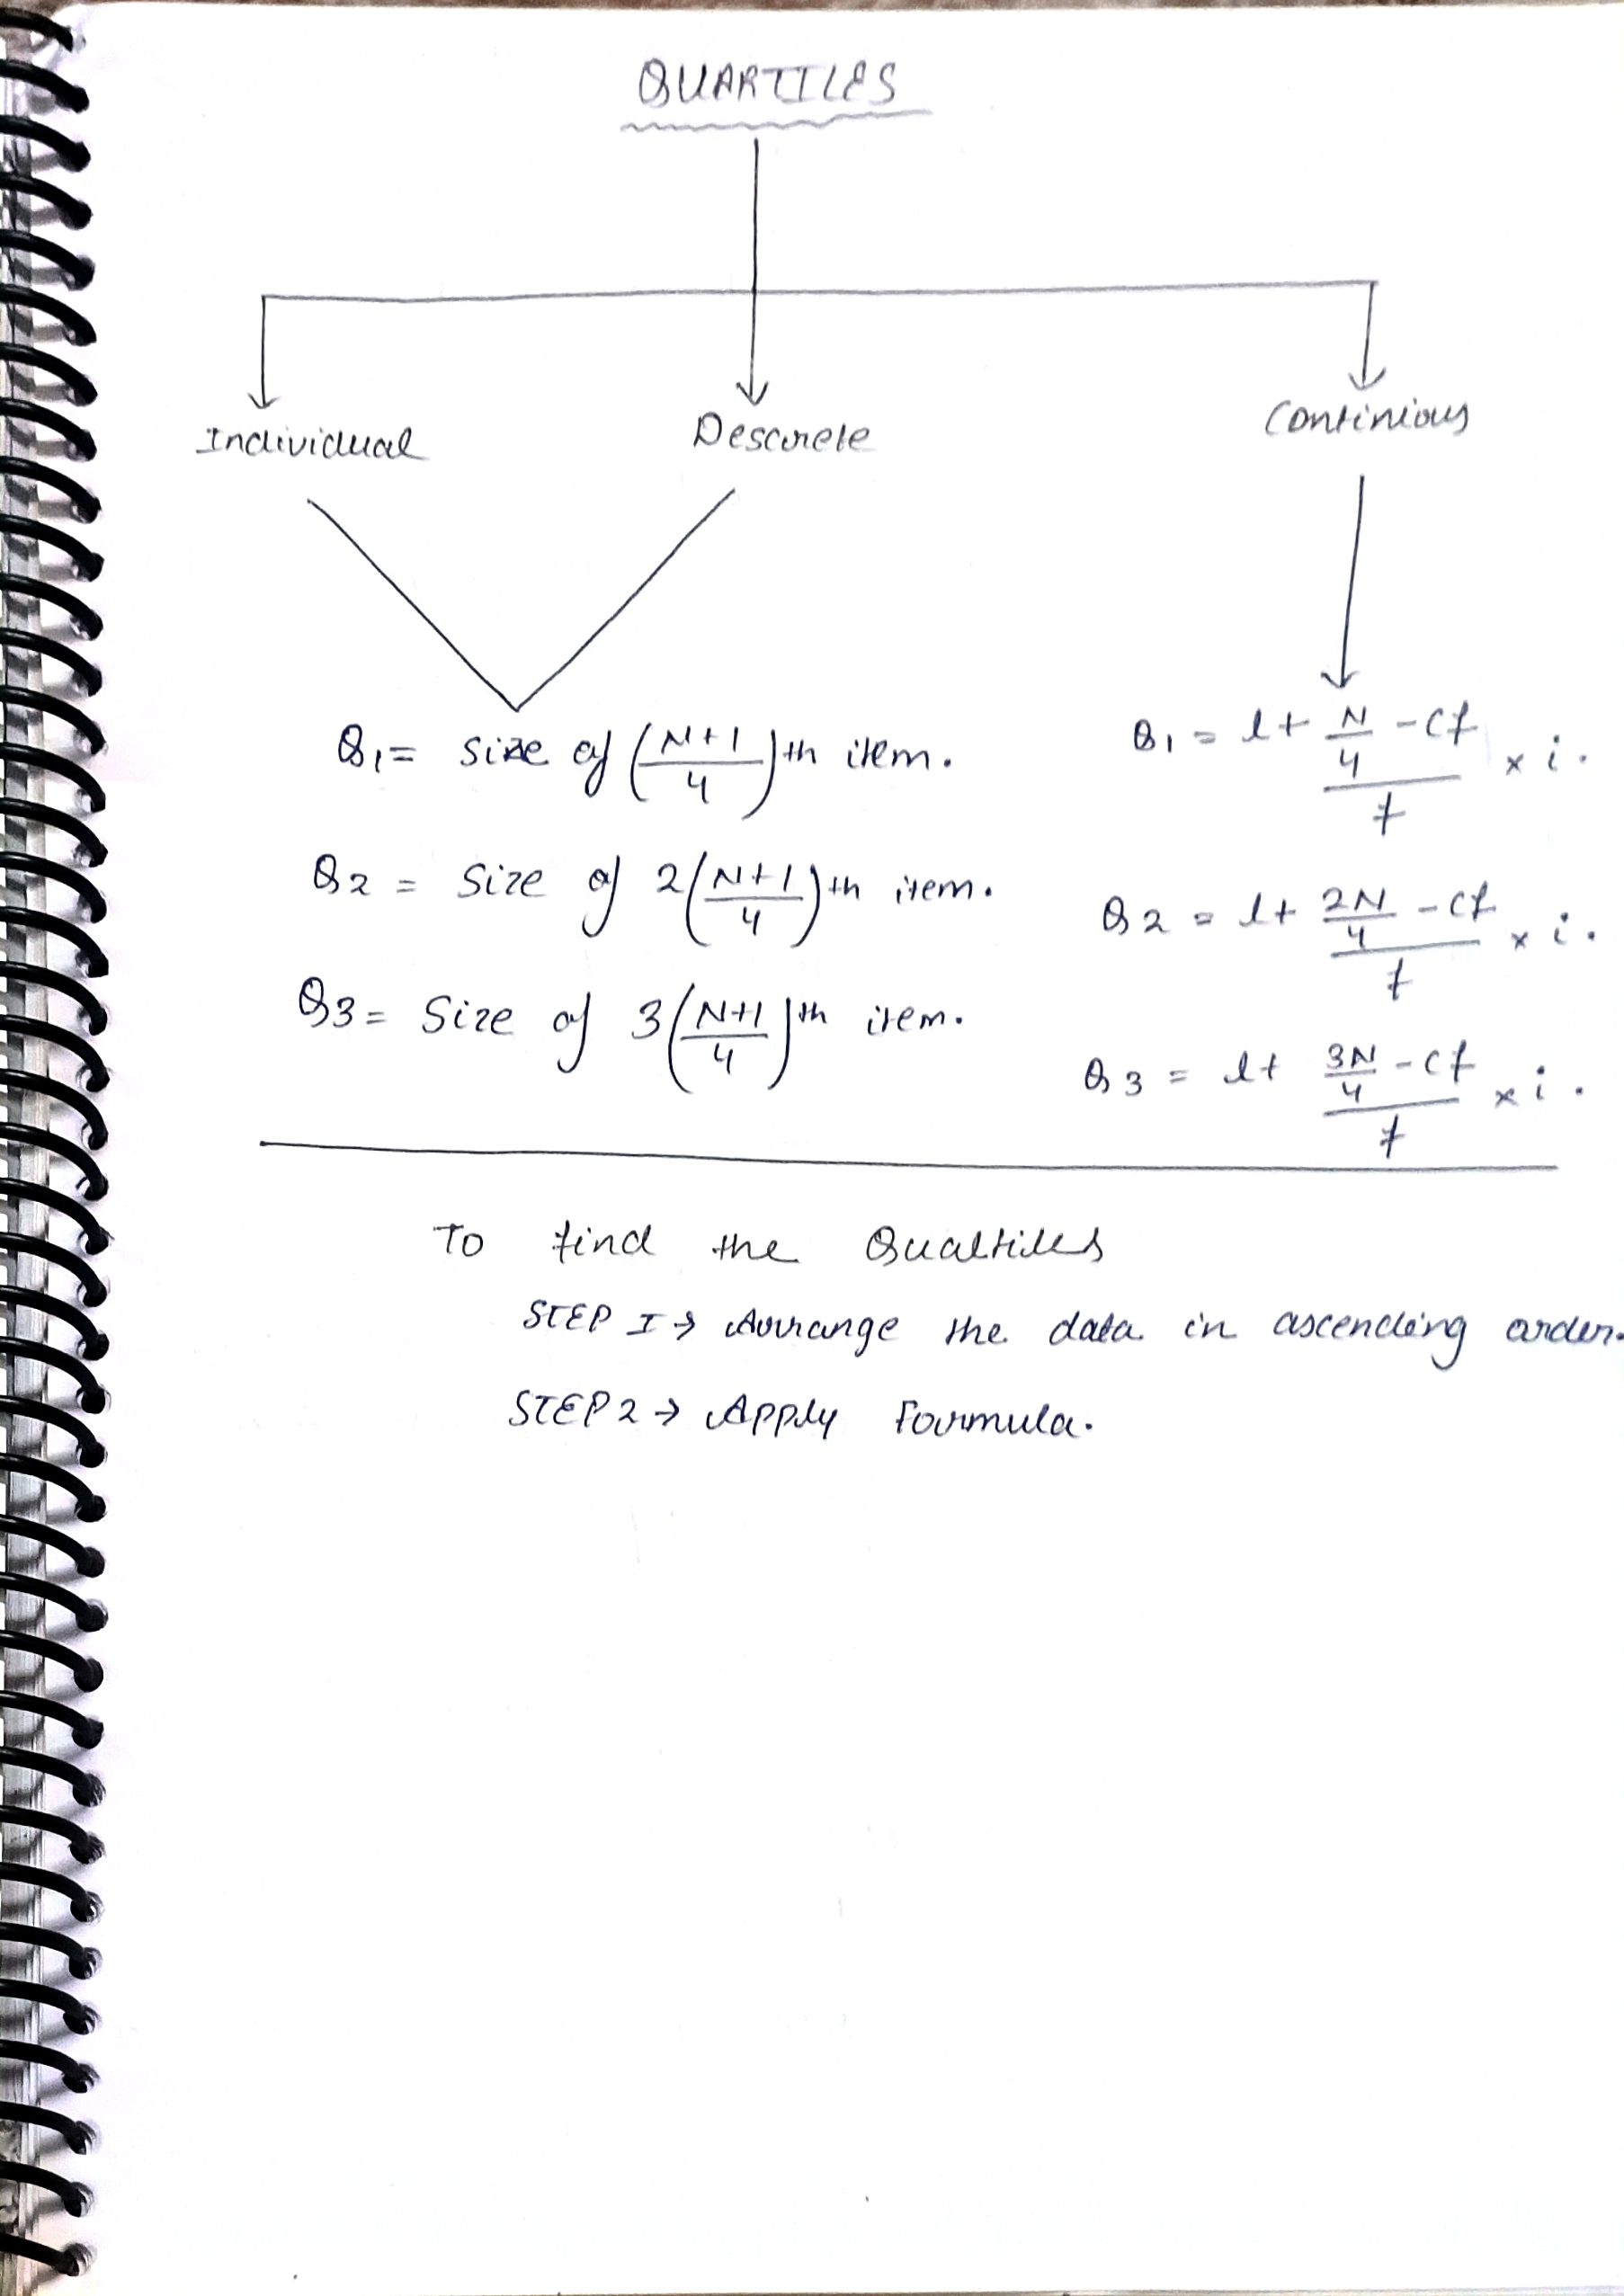 QUARTILES
Individual Descrete Continious
Q1 = Size of (N+1/4)th item.
Q2 = Size of 2(N+1/4)th item.
Q3 = Size of 3(N+1/4)th item.
Q1 = l + N/4 - Cf / f × i.
Q2 = l + 2N/4 - Cf / f × i.
Q3 = l + 3N/4 - Cf / f × i.
To find the Qualtiles
STEP I → Arrange the data in ascending order.
STEP 2 → Apply Formula.